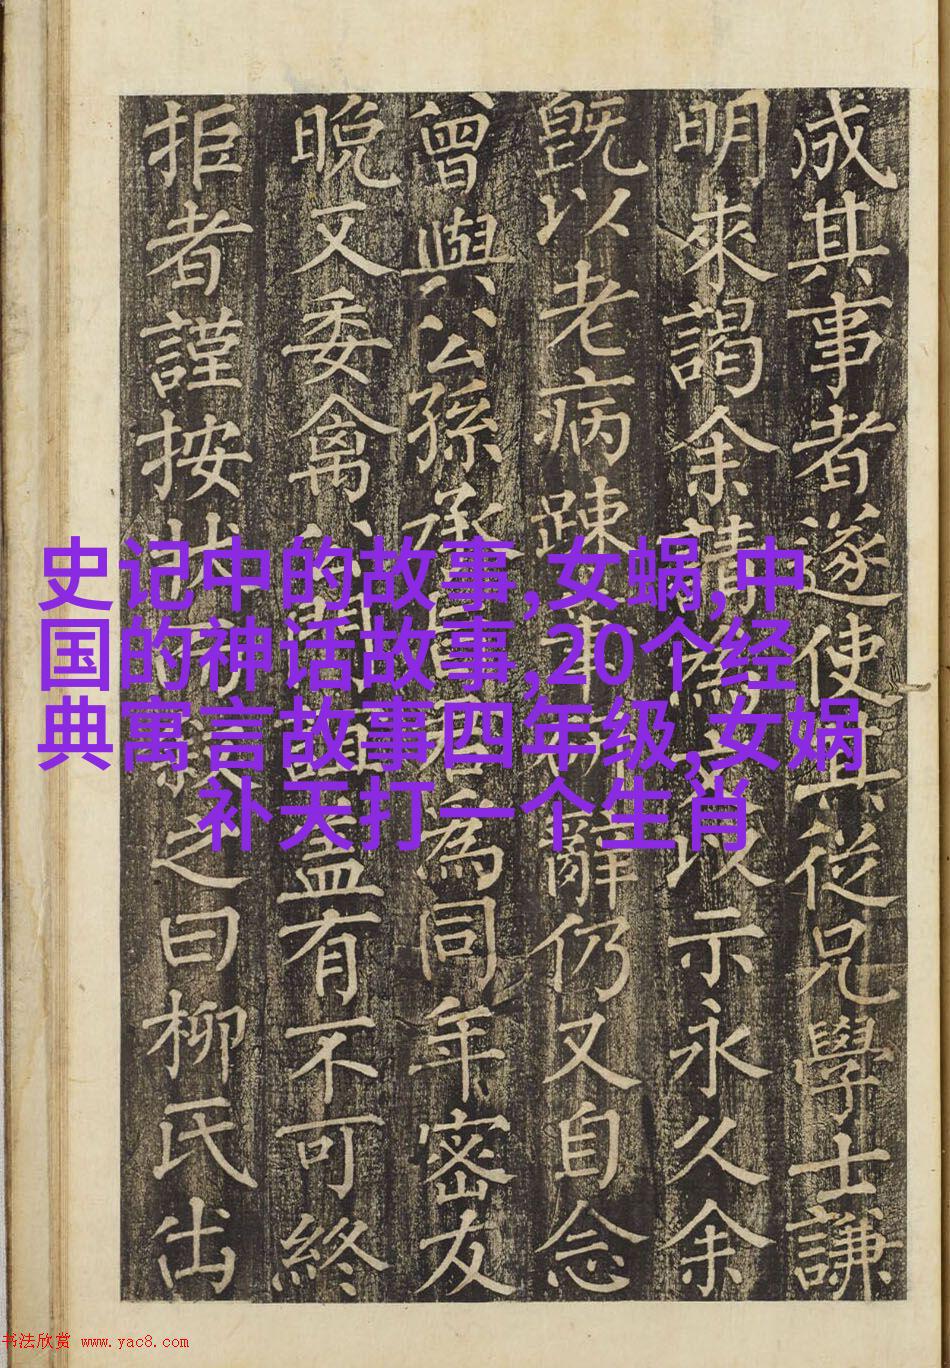 成其事者遂使其從兄學士謙
明來謁余請為以示永久余
既以老病踈辭仍又自念
曾與公孫承為同年密友
晚又委禽盖有不可終
拒者謹按状之曰柳氏出
史记中的故事,女蜗,中
国的神话故事,20个经
典寓言故事四年级,女娲
补天打一个生肖
书法欣赏 www.yac8.com